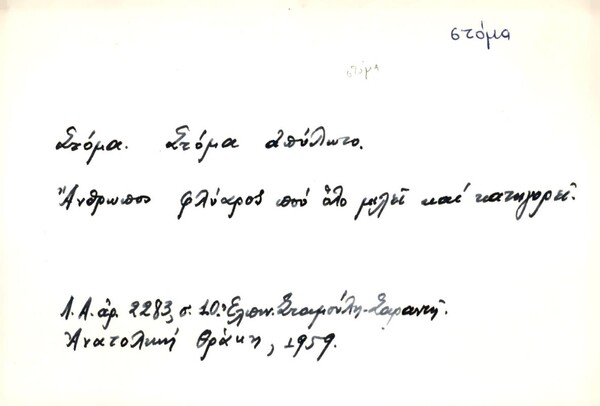 στόμα
στόμα
Στόμα. Στόμα ἀπύλωτο.
Ἄνθρωπος φλύαρος πού ὅλο μιλεῖ καί κατηγορεῖ.
Λ.Α. ἀρ. 2283, σ. 10. Ἐλπιν. Σταμούλη-Σαραντῆ.
Ἀνατολική Θράκη, 1959.